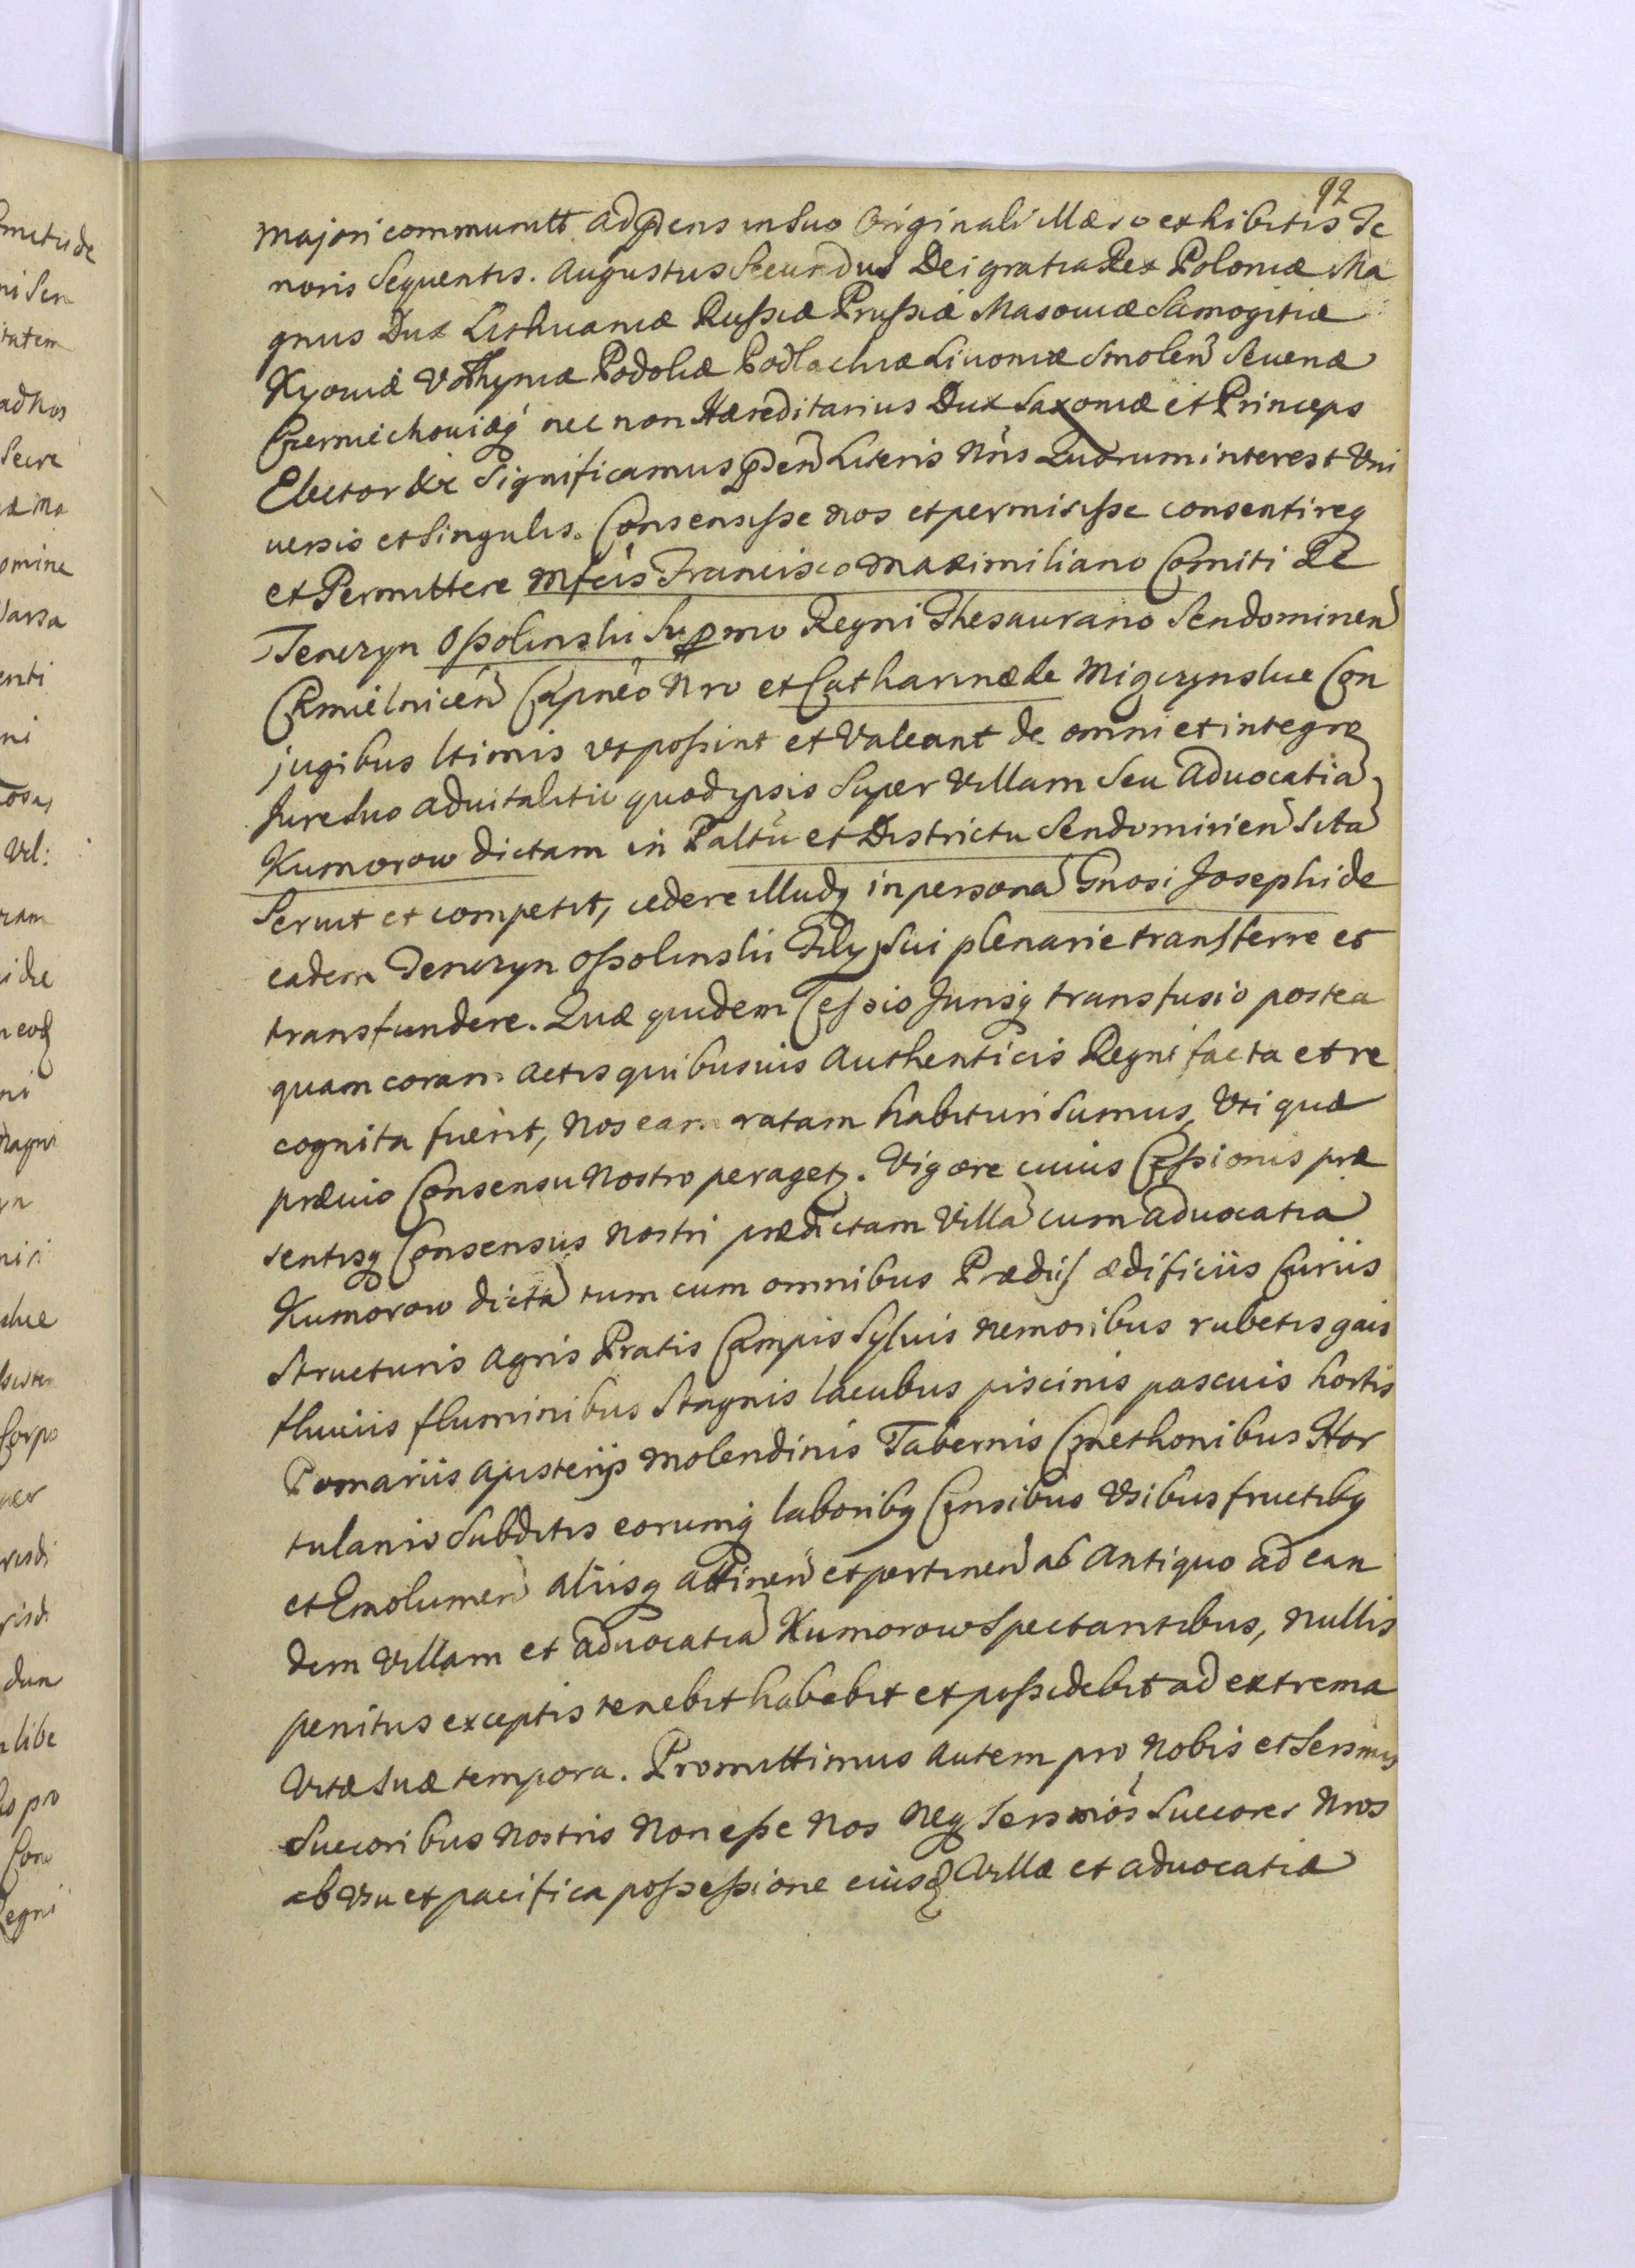 92
majori communitt adprens in suo Originali Macro exhibitis Te
noris Sequentis. Augustus Secundus Dei gratia Rex Poloniæ Ma
gnus Dux Lithuaniæ Russiæ Prussiæ Masoviæ Samogitiæ
Kyoviæ Volhyniæ Podoliæ Podlachiæ Livoniæ Smolen Seueriæ
Czerniechoviæq nec non Hæreditarius Dux Saxoniæ et Princeps
Elector &c Significamus pden Literis Nris Quorum interest Vni
uersis et Singulis. Consensisse nos et permisisse consentireq
et Permittere Mfcis Francisco Maximiliano Comiti de
Tenczyn Ossolinski Supmo Regni Thesaurario Sendomirien
Chmielnicen Capneo Nro et Catharinæ de Migczynskie Con
jugibus ltimis vt possint et Valeant de omni et integro
Jure suo aduitalitio quod ipsis Super Villam Seu Aduocatia
Kumorow dictam in Paltu et Districtu Sendomirien Sita
Seruit et competit, cedere illudq in persona Gnosi Josephi de
eadem Tenczyn Ossolinskii Filij Sui plenarie transferre et
transfundere. Quæ quidem Cessio Jurisq transfusio postea
quam coram actis quibusuis Authenticis Regni facta et re
cognita fuerit, Nos eam ratam habituri Sumus, Vti quæ
præuio Consensu Nostro peraget. Vigore cuius Cessionis præ
sentisq Consensus Nostri prædictam Villa cum aduocatia
Kumorow dicta tum cum omnibus Prædiis ædificiis Curiis
Structuris Agris Pratis Campis Syluis Nemoribus rubetis gais
fluuiis fluminibus Stagnis lacubus piscinis pascuis hortis
Pomariis apisterijs Molendinis Tabernis Cmethonibus Hor
tulanis Subditis eorumq laboribq Censibus Vsibus fructibq
et Emolumen aliisq attinen et pertinen ab Antiquo ad ean
dem Villam et aduocatia Kumorow Spectantibus, Nullis
penitus exceptis tenebit habebit et possidebit ad extrema
Vitæ Suæ tempora. Promittimus autem pro Nobis et Sersmis
Succoribus Nostris Non esse Nos Neq Sersmos Succores Nros
ab Vsu et pacifica possessione eiusd Villæ et aduocatiæ